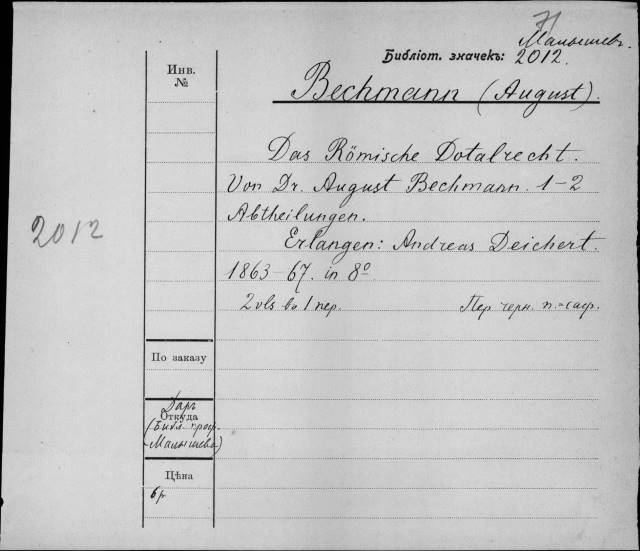 71
Малышевъ.
Библіот. значекъ: 2012.
Инв.
№
Bechmann (August).
Das Römische Dotalrecht.
Von Dr. August Bechmann. 1–2
Abtheilungen.
Erlangen: Andreas Deichert.
1863–67. in 8º
2 vls въ 1 пер.
Пер. черн. п.-саф.
2012
По заказу
Откуда
Даръ
(Библ. проф.
Малышева)
Цѣна
6 р